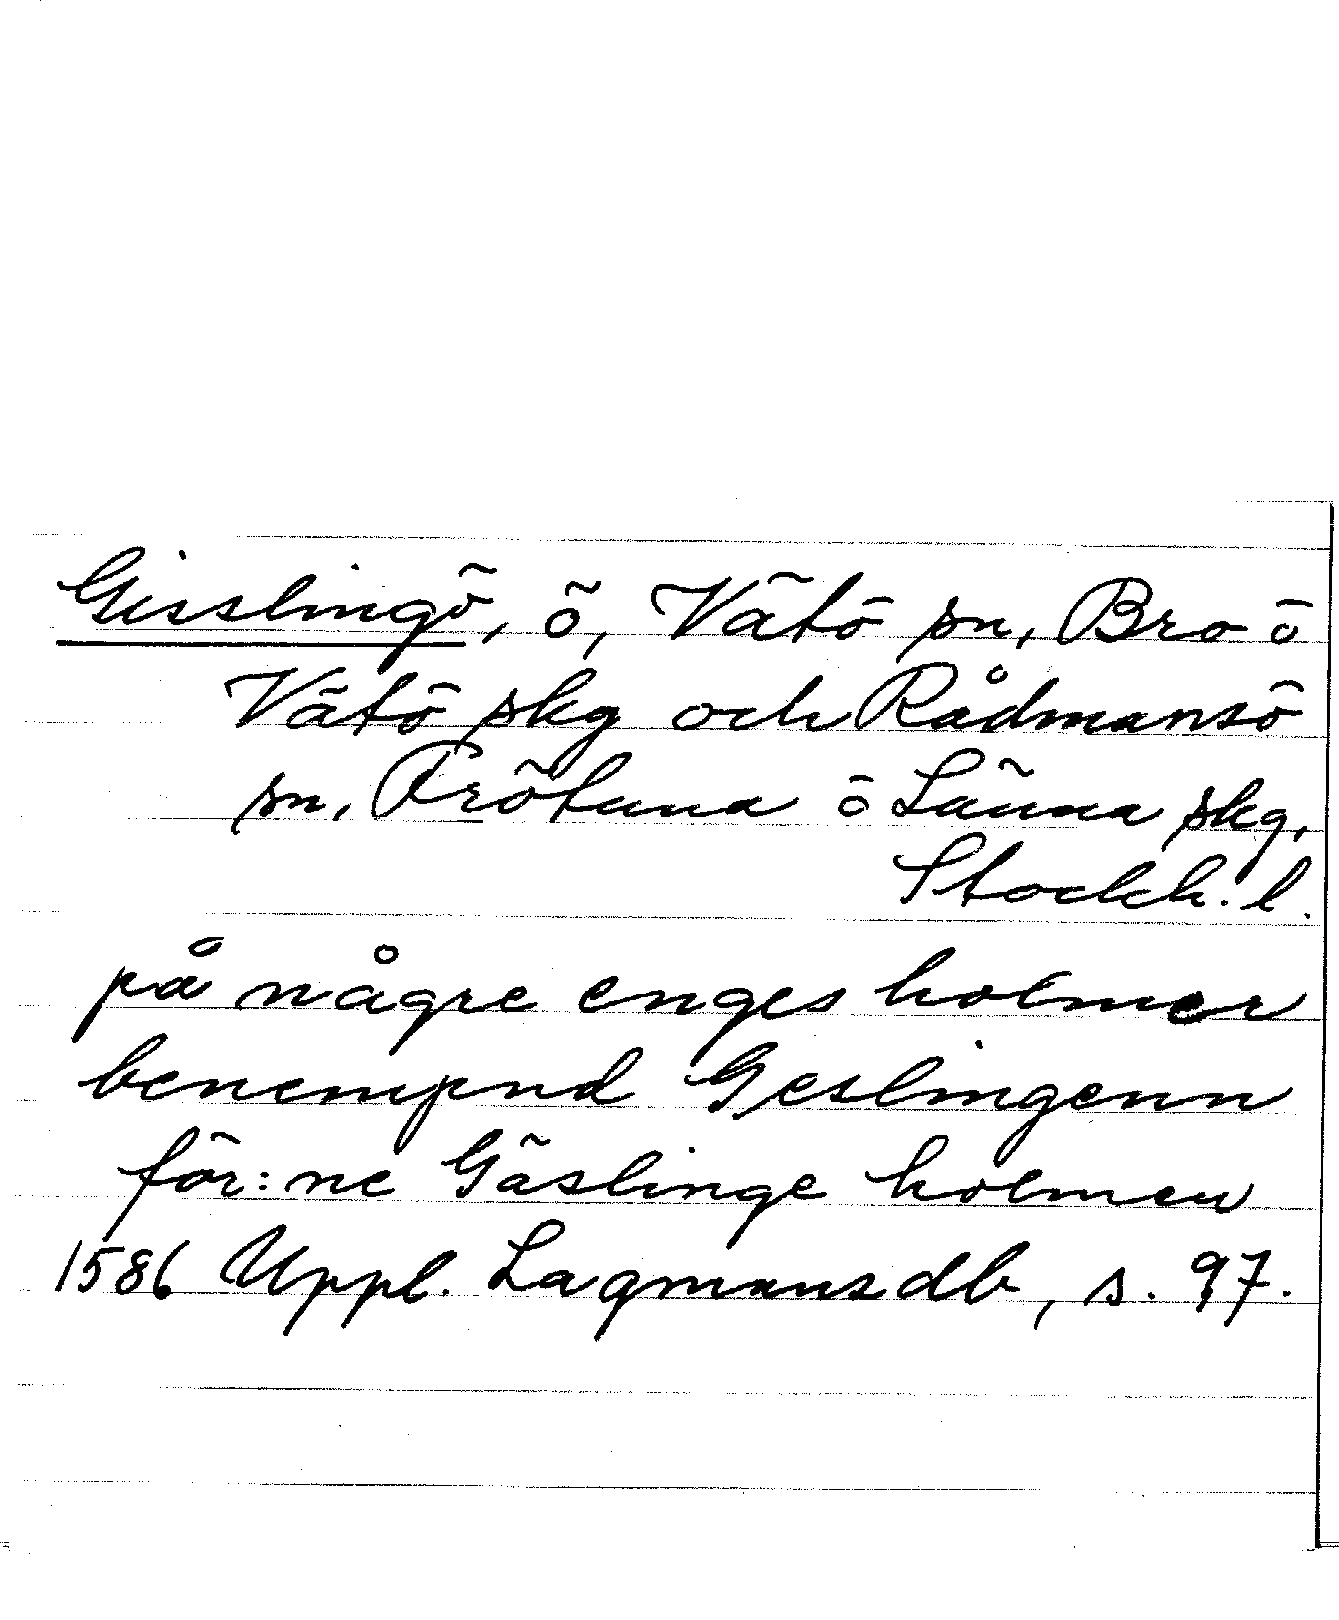 Gisslingö, ö, Vätö sn, Bro o
Vätö skg och Rådmansö
sn, Frötuna o Länna skg,
Stockh. l.
på någre enges holmer
benempnd Geslingenn
för:ne Gäslinge holmen
1586 Uppl. Lagmansdb, s. 97.